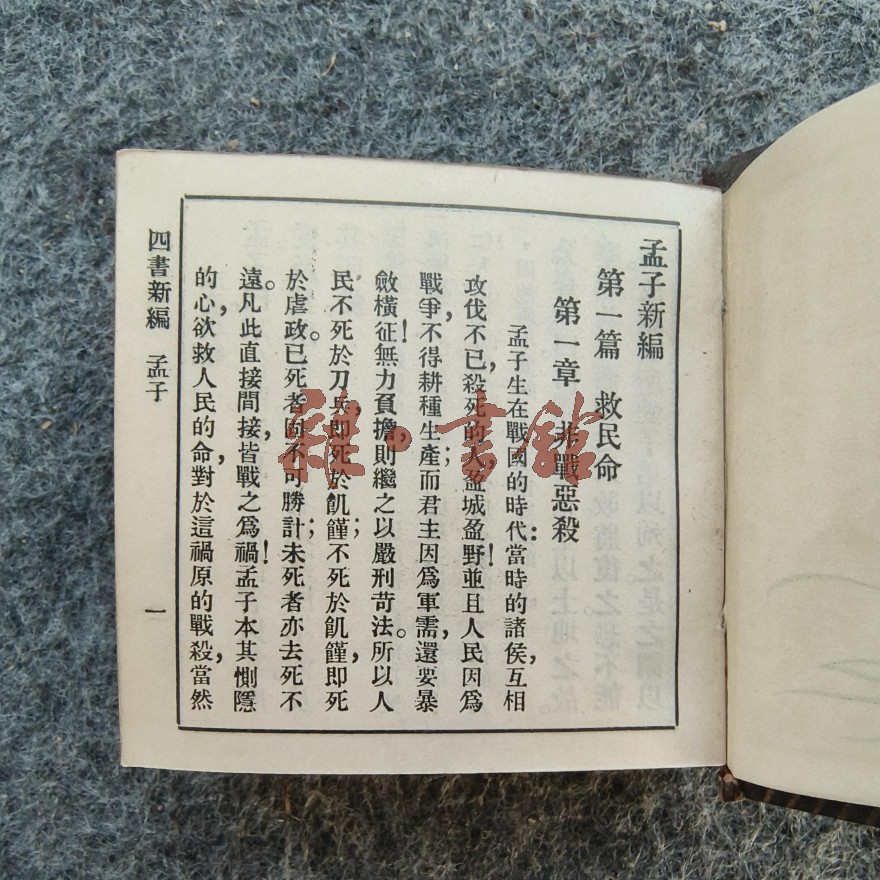 孟子新編
第一篇 救民命
第一章 非戰惡殺
孟子生在戰國的時代：當時的諸侯，互相
攻伐不已，殺死的人，盈城盈野！並且人民因爲
戰爭，不得耕種生產；而君主因爲軍需，還要暴
斂橫征！無力負擔，則繼之以嚴刑苛法。所以人
民不死於刀兵，即死於飢饉；不死於飢饉，即死
於虐政。已死者固不可勝計；未死者亦去死不
遠。凡此直接間接，皆戰之爲禍！孟子本其惻隱
的心，欲救人民的命，對於這禍原的戰殺，當然
四書新編 孟子
一
雅·書館